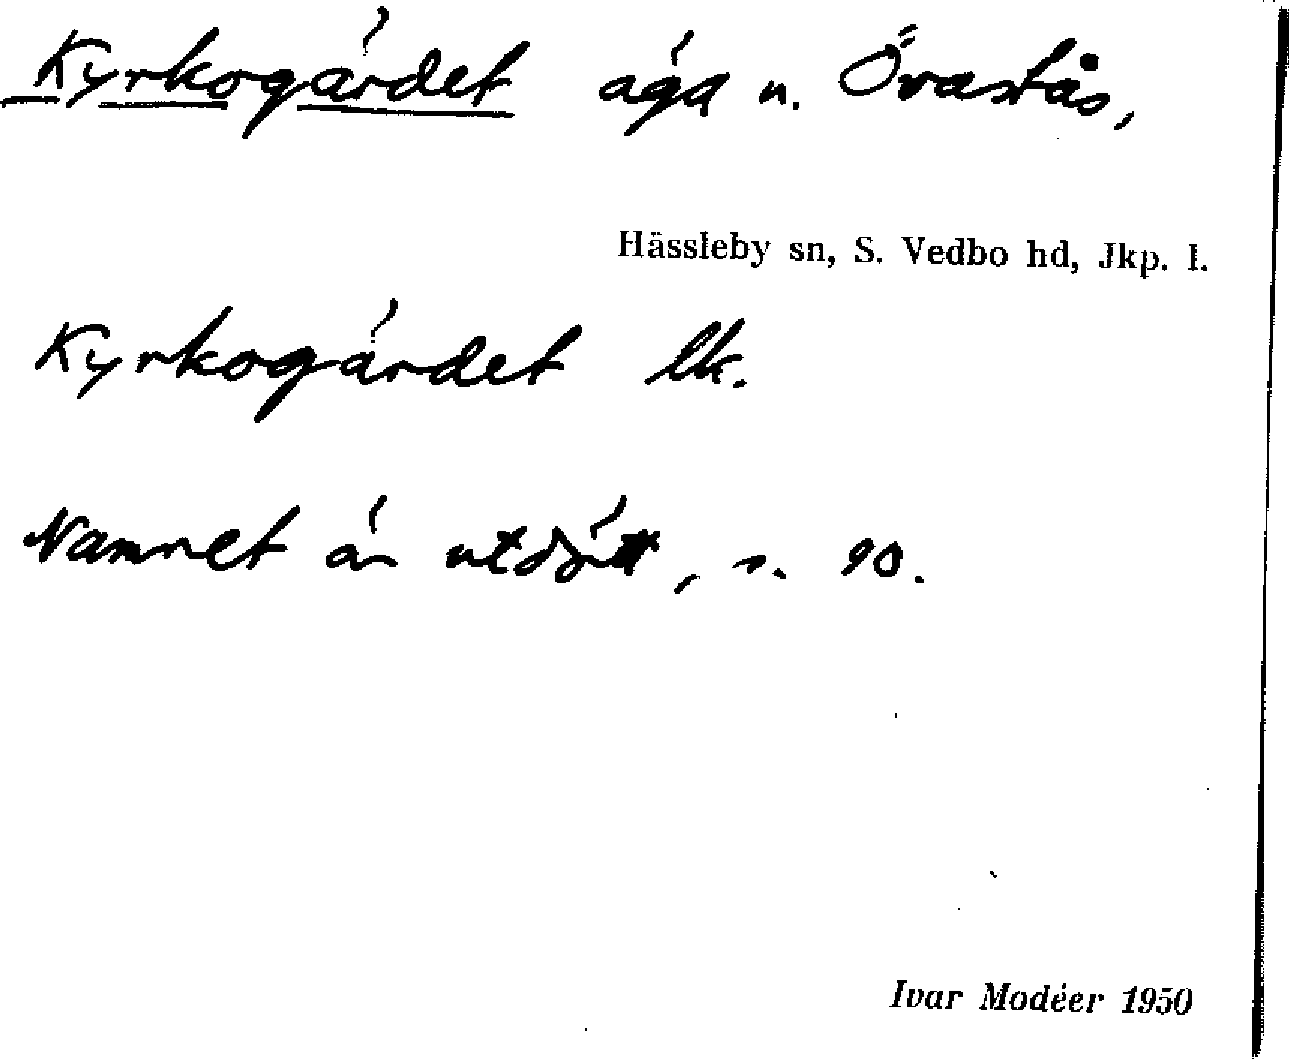 Kyrkogärdet äga u. Övastås,
Hässleby sn, S. Vedbo hd, Jkp. l.
Kyrkogärdet lk.
Namnet är utdött, s. 90.
Ivar Modéer 1950